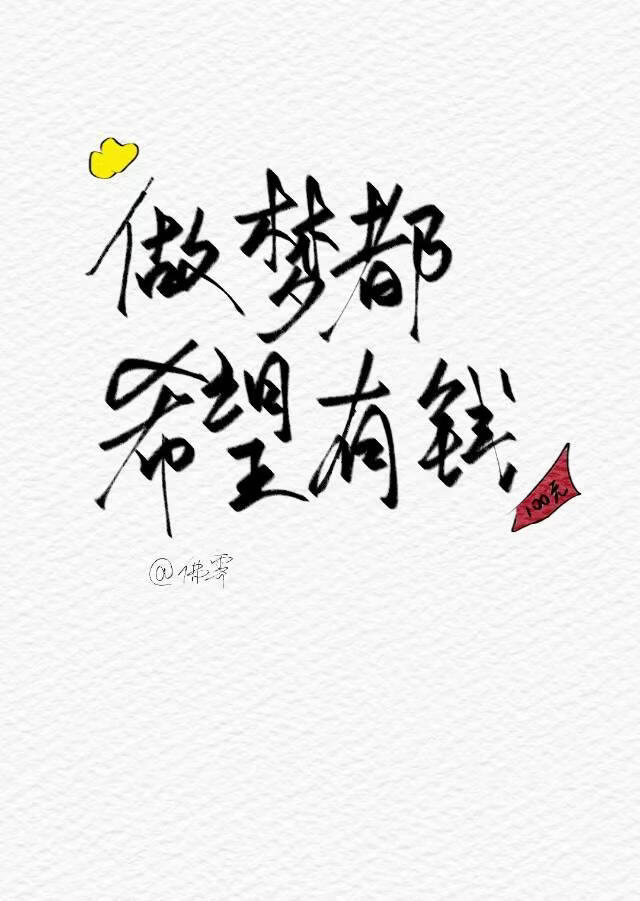 做梦都
希望有钱
100元
@佛霁